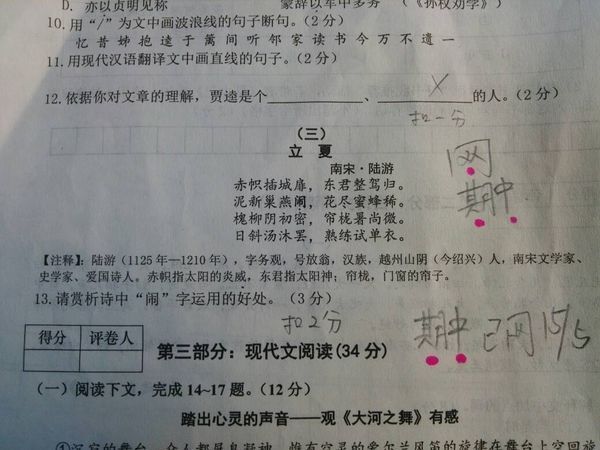 D. 亦以贞明见称 蒙辞以军中多务 （《孙权劝学》）
10.用“/”为文中画波浪线的句子断句。(2分)
忆昔姊抱逵于篱间听邻家读书今万不遗一
11.用现代汉语翻译文中画直线的句子。(2分)
12.依据你对文章的理解，贾逵是个____________、____________的人。(2分)
X
扣一分
（三）
立 夏
南宋·陆游
赤帜插城扉，东君整驾归。
泥新巢燕闹，花尽蜜蜂稀。
槐柳阴初密，帘栊暑尚微。
日斜汤沐罢，熟练试单衣。
网
期中
【注释】：陆游（1125年—1210年），字务观，号放翁，汉族，越州山阴（今绍兴）人，南宋文学家、
史学家、爱国诗人。赤帜指太阳的炎威，东君指太阳神；帘栊，门窗的帘子。
13.请赏析诗中“闹”字运用的好处。（3分）
扣2分
得分 评卷人
第三部分：现代文阅读(34分)
期中 已网 15/5
（一）阅读下文，完成14~17题。（12分）
踏出心灵的声音——观《大河之舞》有感